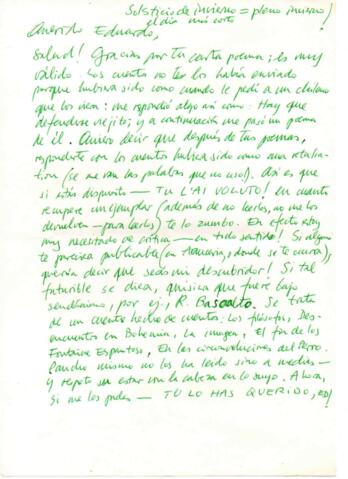 Solsticio de invierno = pleno invierno/
el día más corto
Querido Eduardo,
Salud! Gracias por tu carta poema; es muy
válido. Los cuentos no te los había enviado
porque hubiera sido como cuando le pedí a un chileno
que los viera: me respondió algo así como: Hay que
defenderse viejito; y a continuación me pasó un poema
de él. Quiero decir que después de tus poemas,
responderte con los cuentos hubiera sido como una retalia-
tion (se me van las palabras que no uso). Así es que
si estás dispuesto — TU L'AI VOLUTO! en cuanto
recupere un ejemplar (además de no leerlos, no me los
devuelven — para leerlos) te lo zumbo. En efecto estoy
muy necesitado de crítica — en todo sentido! Si alguno
te pareciera publicable (en donde se te ocurra),
querría decir que serás mi descubridor! Si tal
futurible se diera, quisiera que fuere bajo
seudónimo, por ej., R. Basoalto. Se trata
de un cuento hecho de cuentos. Los filósofos, Des-
encuentros en Bohemia, La imagen, El fin de los
Fontaine Espantoso, En las circunvoluciones del perro.
Pancho mismo no los ha leído sino a medias —
y repito sin estar con la cabeza en lo suyo. Ahora,
si me los pides — TU LO HAS QUERIDO, ED!